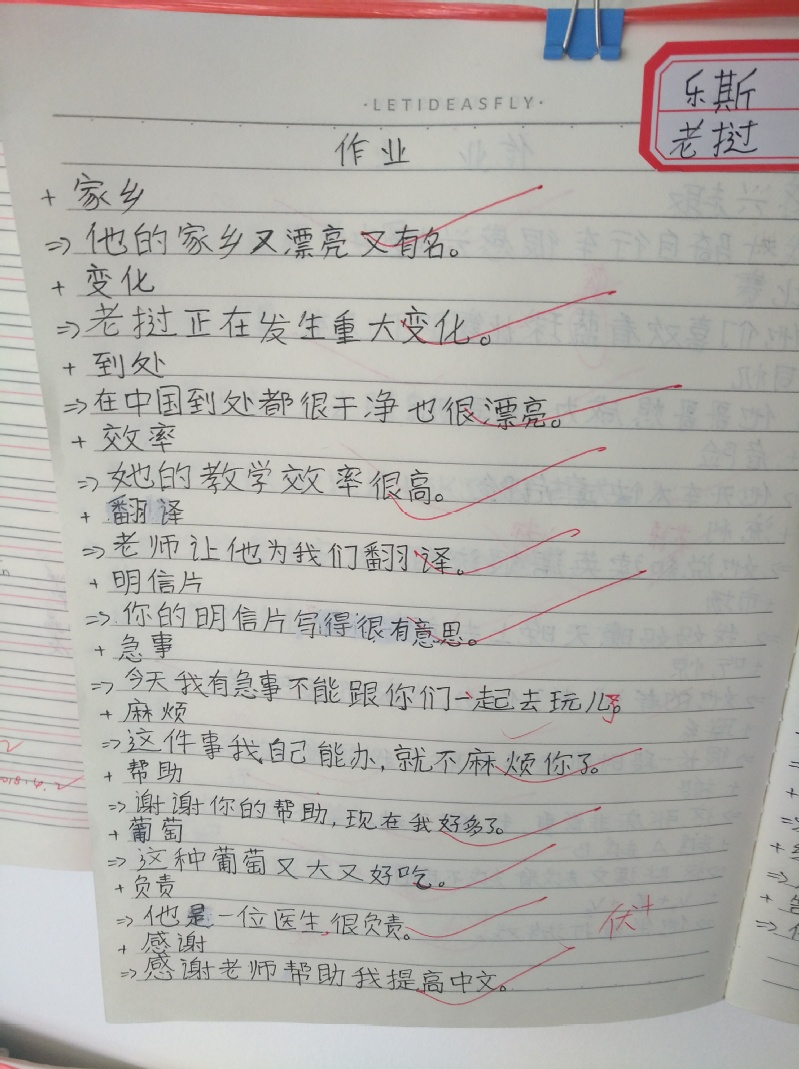 ·LETIDEASFLY·
乐斯
老挝
作业
+ 家乡
⇒ 他的家乡又漂亮又有名。
+ 变化
⇒ 老挝正在发生重大变化。
+ 到处
⇒ 在中国到处都很干净也很漂亮。
+ 效率
⇒ 她的教学效率很高。
+ 翻译
⇒ 老师让他为我们翻译。
+ 明信片
⇒ 你的明信片写得很有意思。
+ 急事
⇒ 今天我有急事不能跟你们一起去玩儿。
+ 麻烦
⇒ 这件事我自己能办,就不麻烦你了。
+ 帮助
⇒ 谢谢你的帮助,现在我好多了。
+ 葡萄
⇒ 这种葡萄又大又好吃。
+ 负责
⇒ 他是一位医生,很负责。
+ 感谢
⇒ 感谢老师帮助我提高中文。